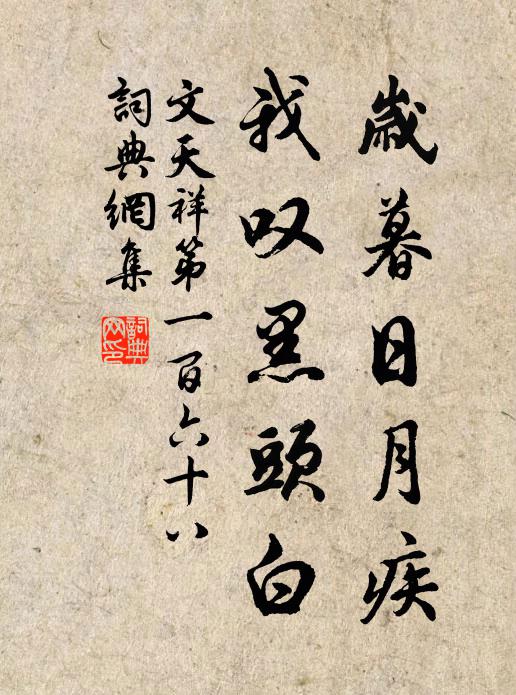 歲暮日月疾
我叹黑頭白
文天祥第一百六十八
詞典網集
詞典網印